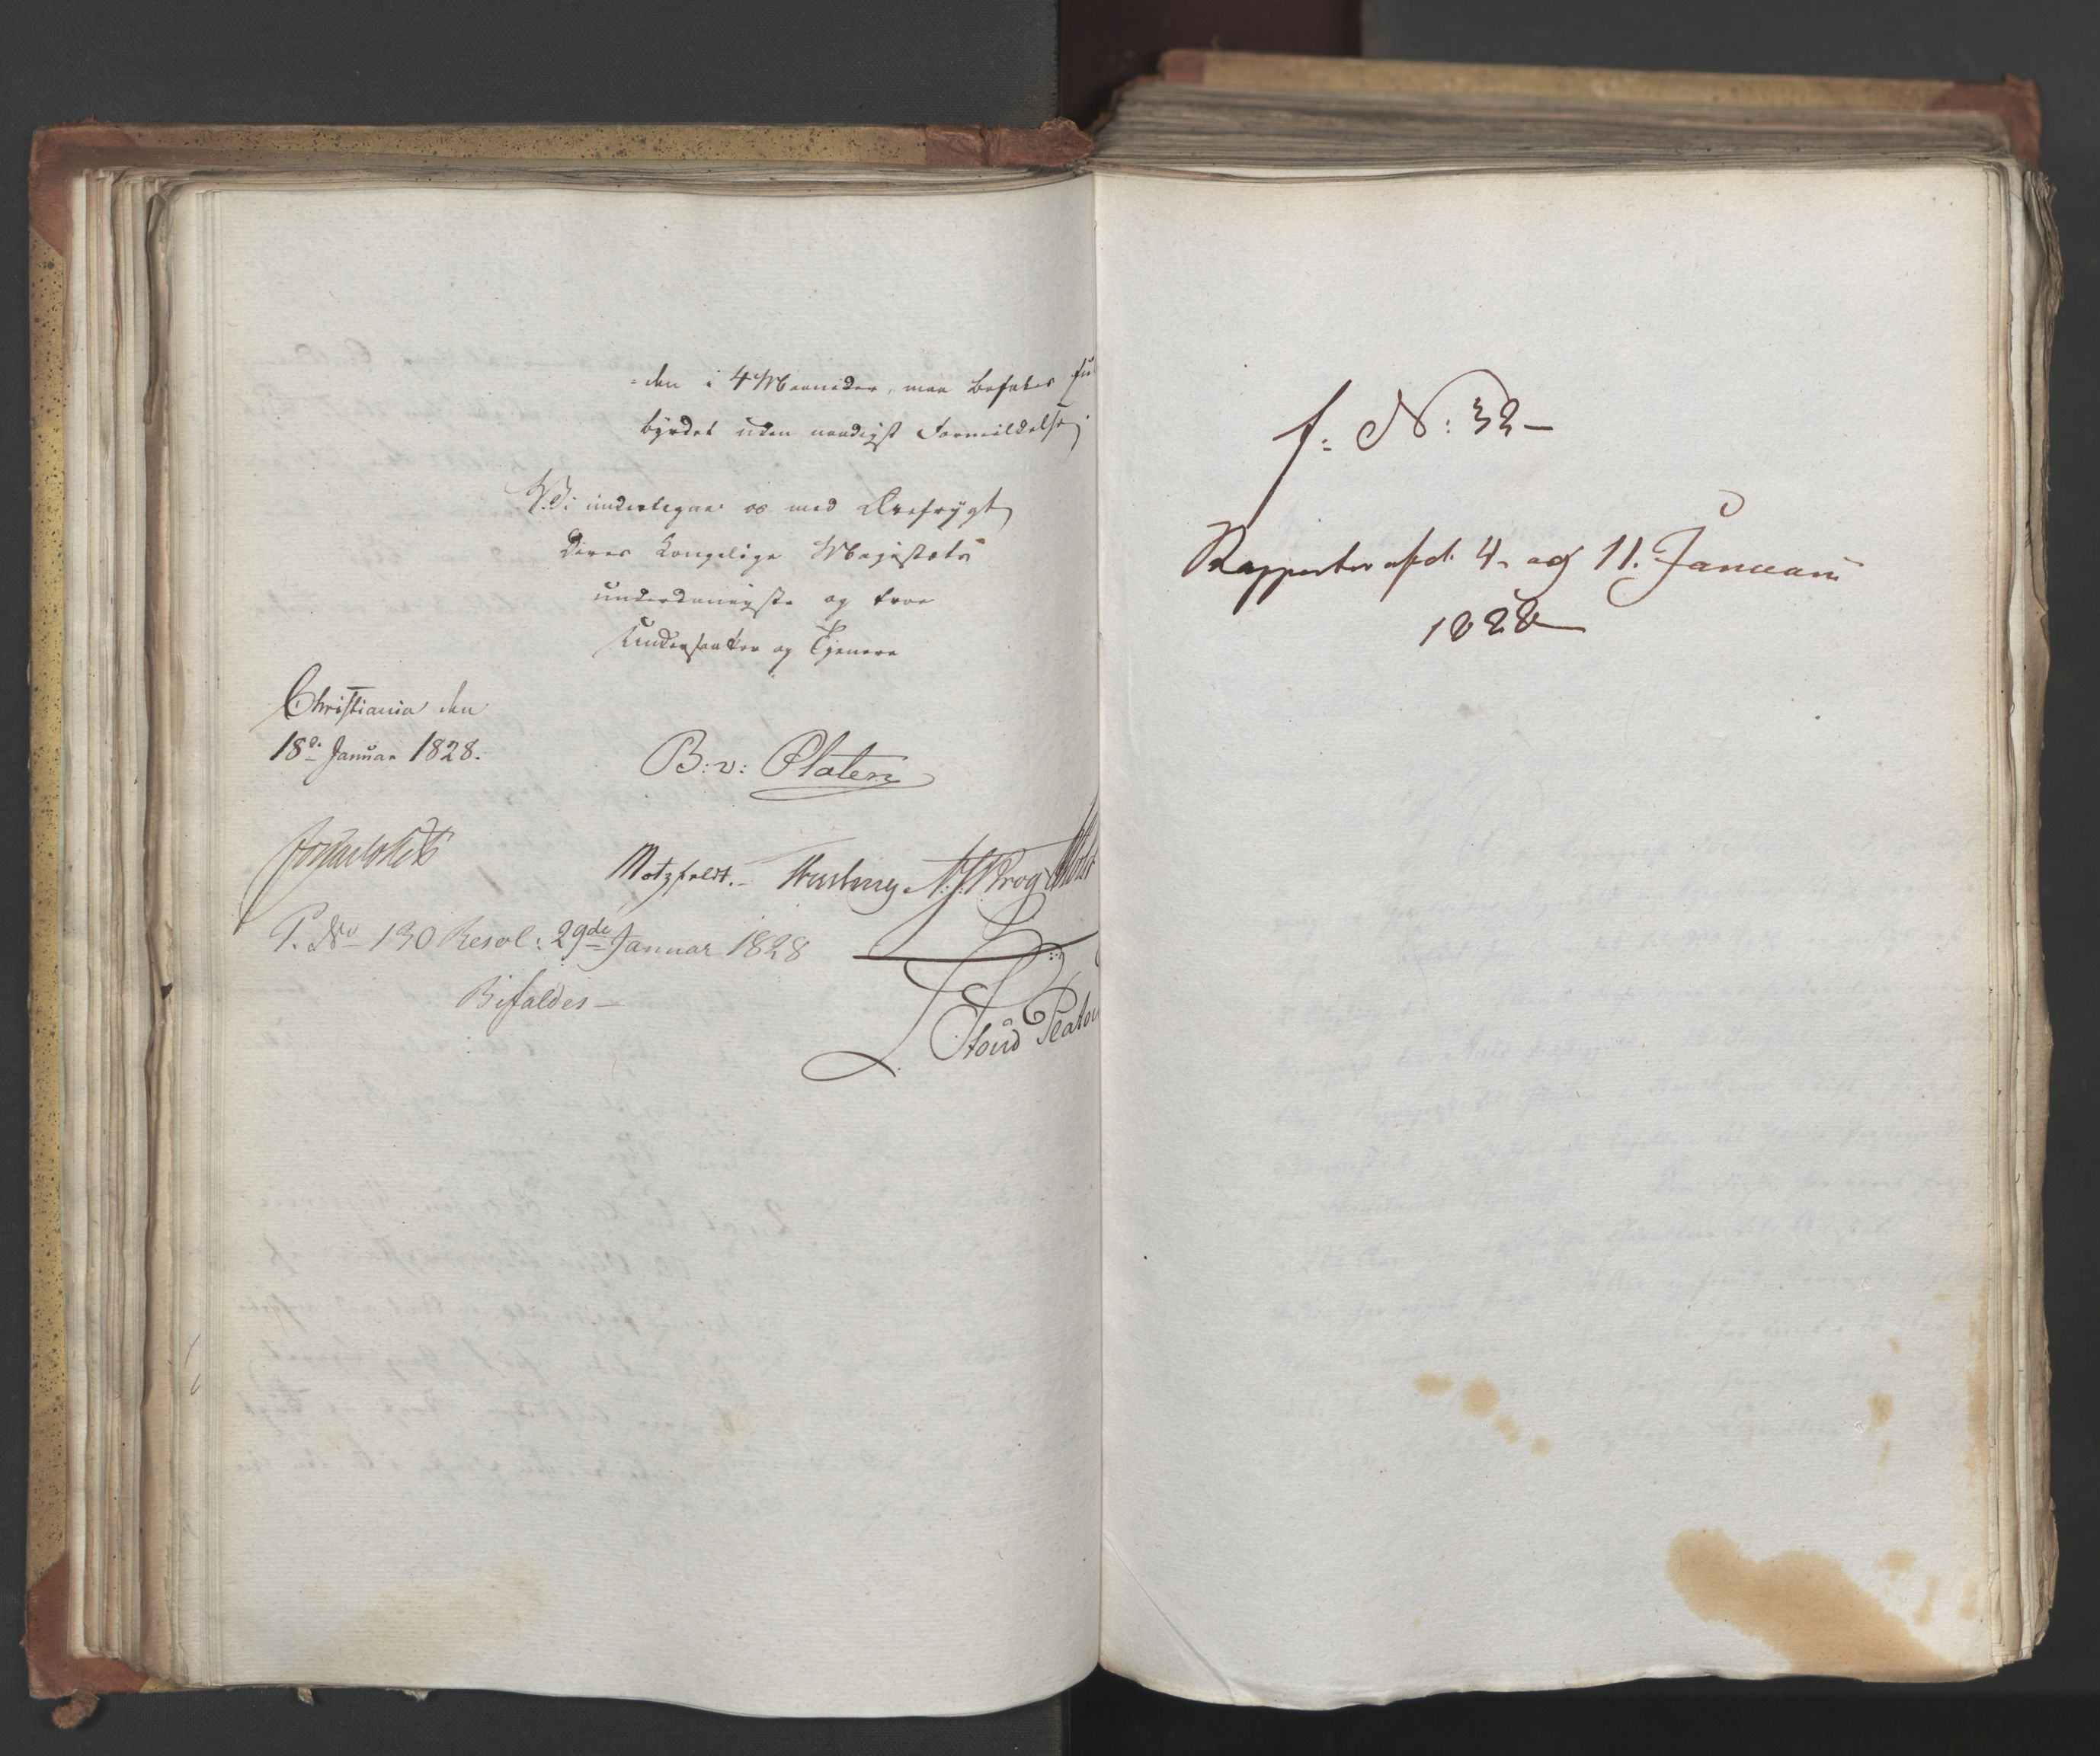 -den i 4 Maaneder, maa befales fu
byrdet uden naadigst Formildelse;
Vi undertegne os med Ærefrygt
Deres Kongelige Majestæts
underdanigste og troe
Undersaatter og Tjenere
Christiania den
18d. Januar 1828.
B: v: Platen
Motzfeldt.
P. No 130 Resol: 29de Januar 1828
Bifaldes—
Stoud Platou
f: N: 32—
Rapporter af d. 4. og 11. Januarii
1828